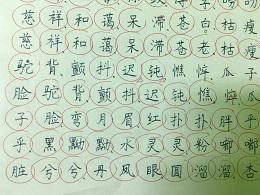 慈祥和蔼呆滞苍白枯瘦
慈祥和蔼呆滞苍老枯瘦
驼背颤抖迟钝憔悴瓜子
脸驼背颤抖迟钝憔悴瓜
子脸弯月眉红扑扑胖乎
乎黑黝黝水灵灵粉嘟嘟
脏兮兮丹凤眼圆溜溜杏